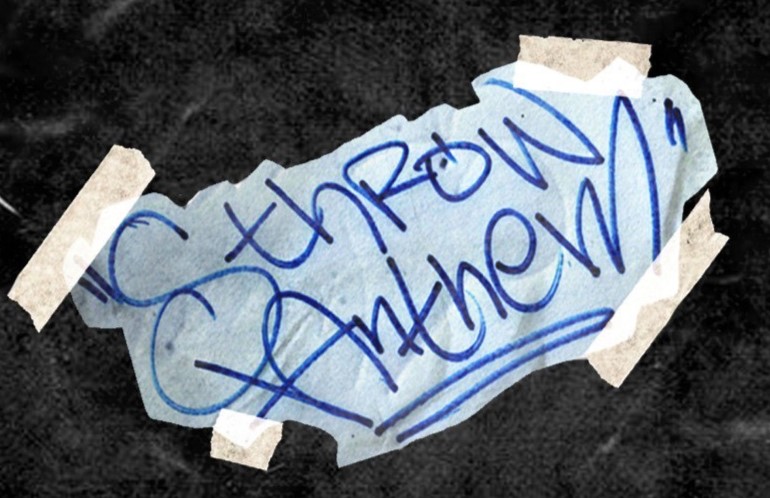 "SthROW
Anthem"